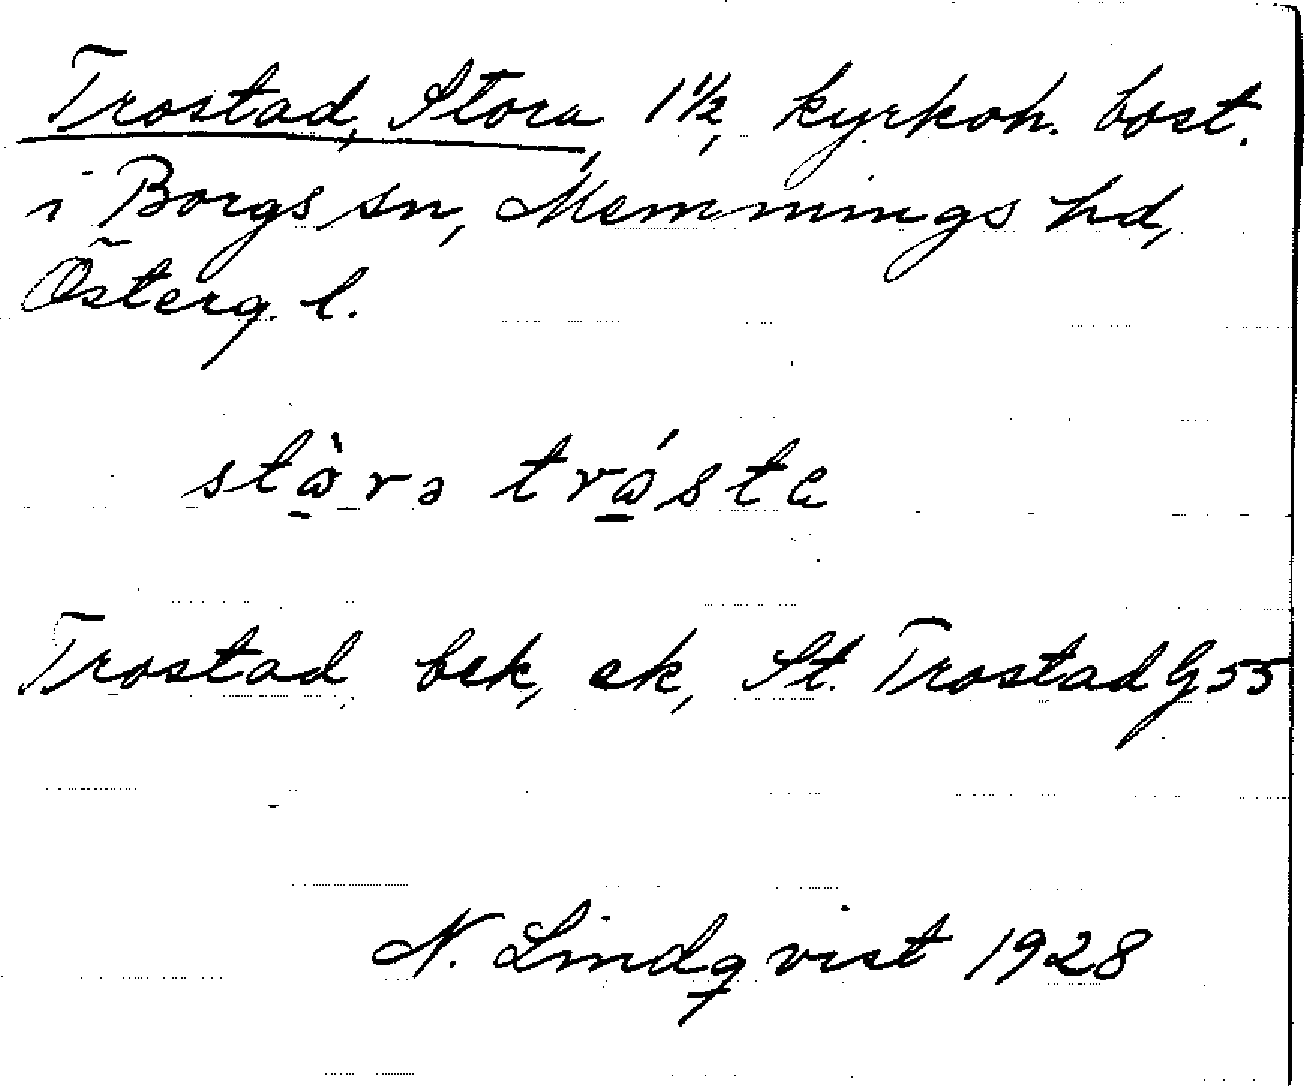 Trostad, Stora, 1½, kyrkoh. bost.
i Borgs sn, Memmings hd,
Österg. l.
stὰ̱rə trά̱sta
Trostad bek, ek, St. Trostad G 55
N. Lindqvist 1928